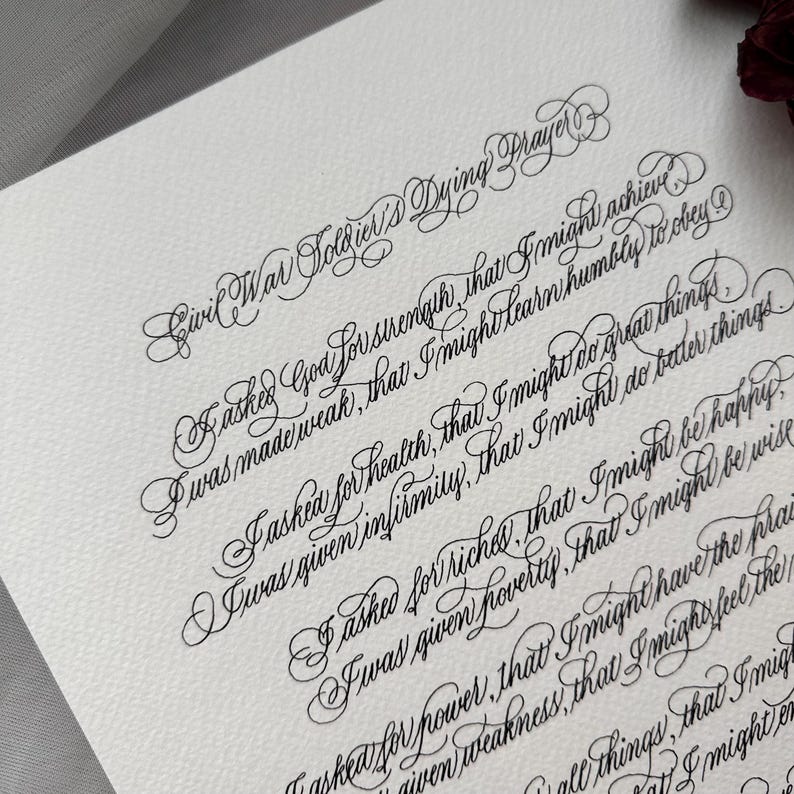 Civil War Soldier's Dying Prayer
I asked God for strength, that I might achieve,
I was made weak, that I might learn humbly to obey.
I asked for health, that I might do great things,
I was given infirmity, that I might do better things.
I asked for riches, that I might be happy,
I was given poverty, that I might be wise
I asked for power, that I might have the prai
given weakness, that I might feel the
all things, that I migh
I might en